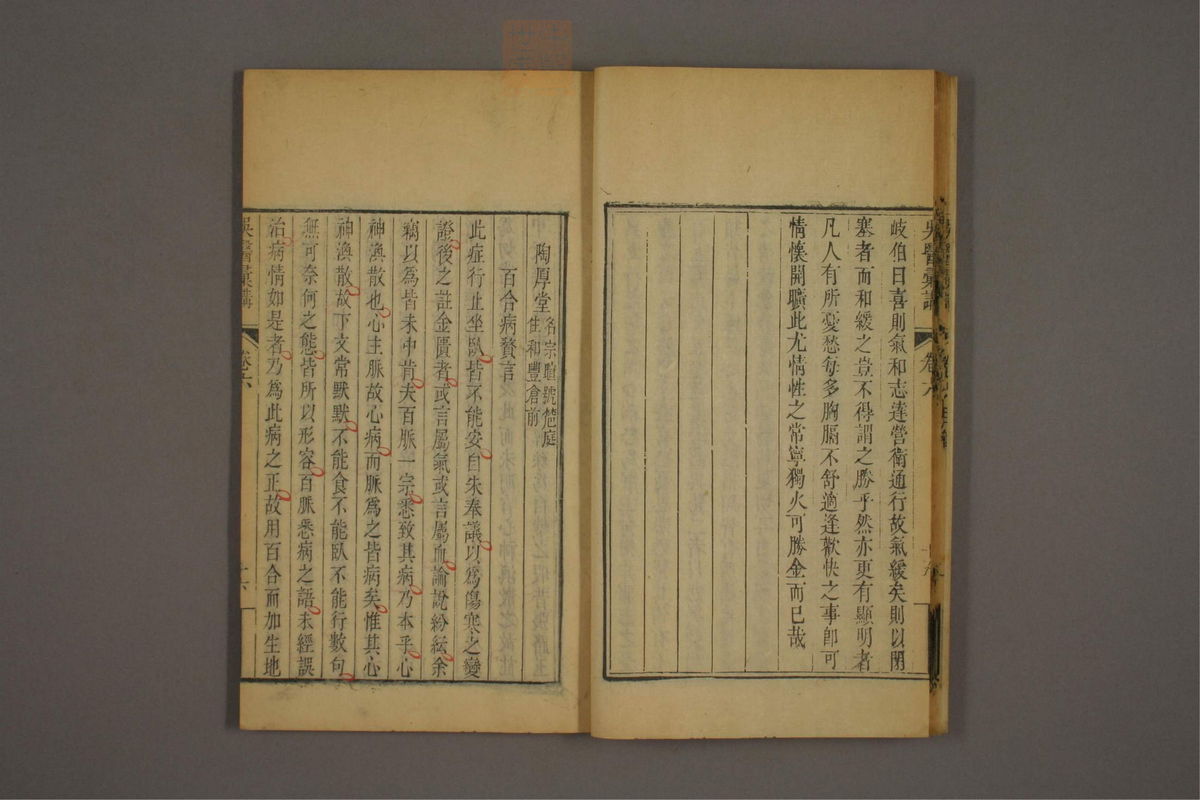 岐伯曰喜則氣和志達營衛通行故氣緩矣則以閉
塞者而和緩之豈不得謂之勝乎然亦更有顯明者
凡人有所憂愁每多胸膈不舒適逢歡快之事即可
情懷開曠此尤情性之常寧獨火可勝金而已哉
吳醫彙講
卷六
陶厚堂
名宗暄號厚庭
住和豐倉前
百合病贅言
此症行止坐臥皆不能安自朱奉議以為傷寒之變
證後之註金匱者或言屬氣或言屬血論說紛紜余
竊以為皆未中肯夫百脈一宗悉致其病乃本乎心
神渙散也心主脈故心病而脈為之皆病矣惟其心
神渙散故下文常默默不能食不能臥不能行數句
無可奈何之態皆所以形容百脈悉病之語未經誤
治病情如是者乃為此病之正故用百合而加生地
吳醫彙講
卷六